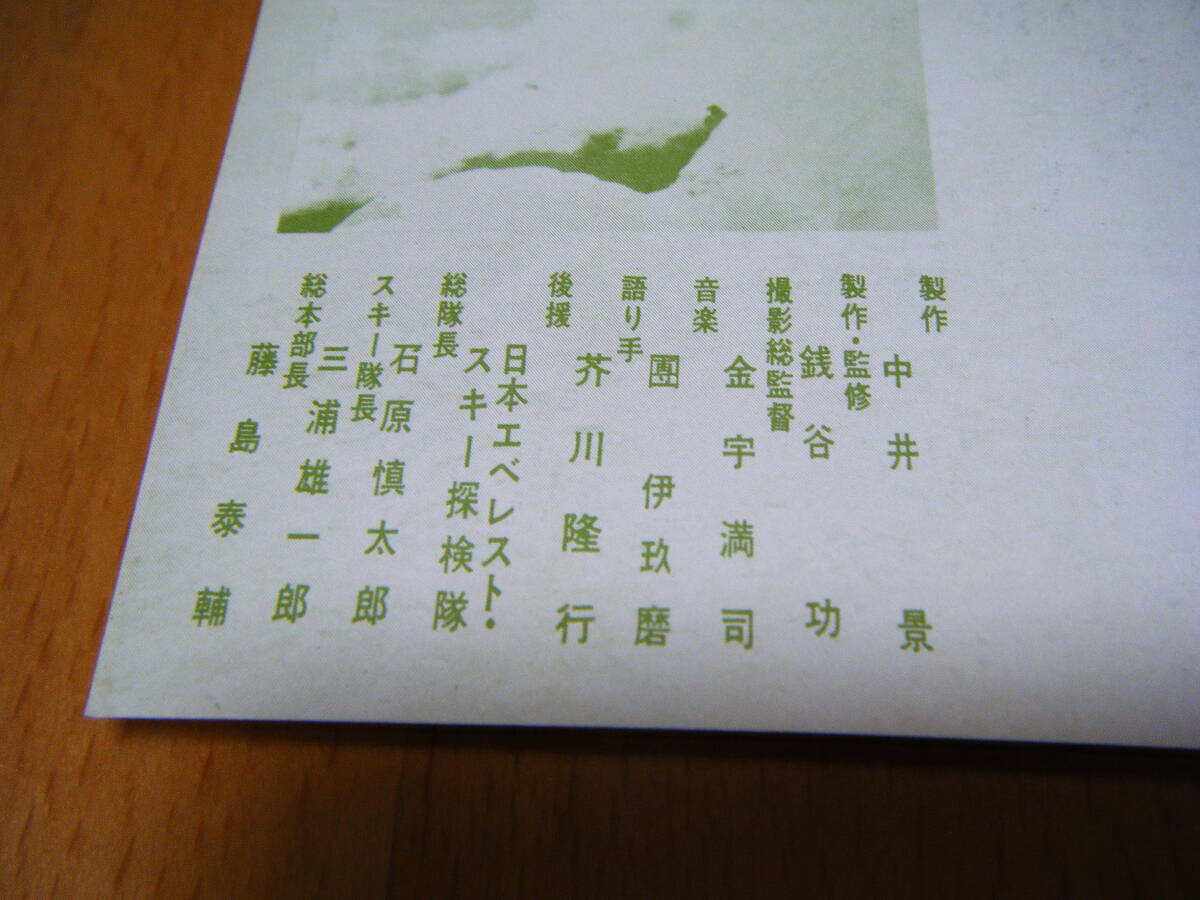 製作
中井 景
製作・監修
銭谷 功
撮影総監督
金宇満司
音楽
團 伊玖磨
語り手
芥川隆行
後援
日本エベレスト・
スキー探検隊
総隊長
石原慎太郎
スキー隊長
三浦雄一郎
総本部長
藤島泰輔